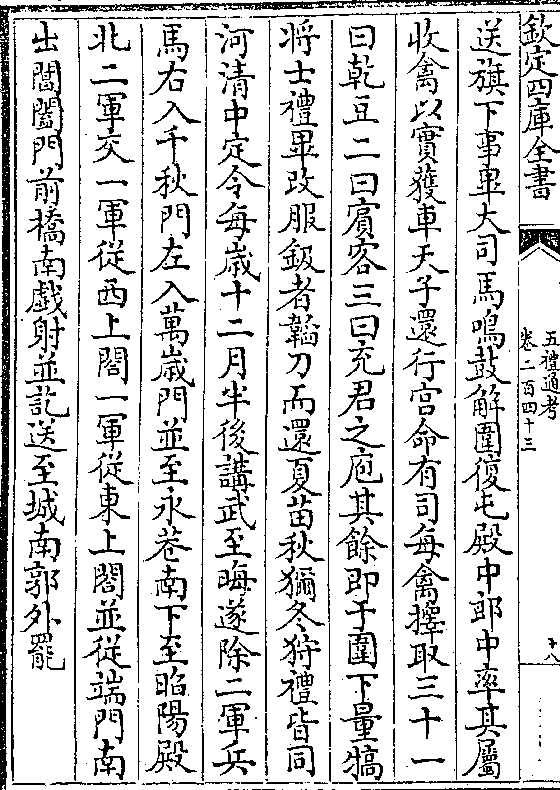 欽定四庫全書
五禮通考
卷二百四十三
十八
送旗下事畢大司馬鳴鼓解圍復屯殿中郎中率其屬
收禽以實獲車天子還行宫命有司每禽擇取三十一
曰乾豆二曰賔客三曰充君之庖其餘即于圍下量犒
将士禮畢改服鈒者韜刀而還夏苗秋獮冬狩禮皆同
河清中定令每嵗十二月半後講武至晦遂除二軍兵
馬右入千秋門左入萬嵗門並至永巷南下至昭陽殿
北二軍交一軍從西上閤一軍從東上閤並從端門南
出閶闔門前橋南戲射並訖送至城南郭外罷